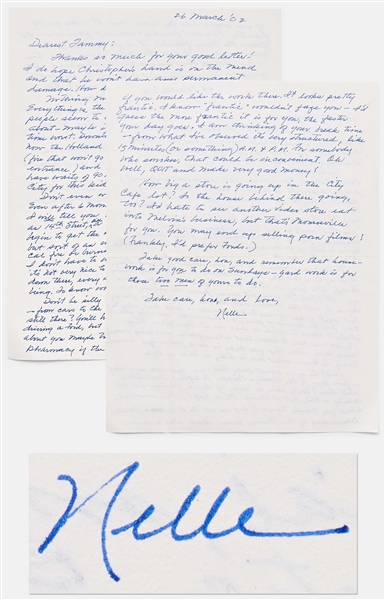 26 March '02
Dearest Tammy:
Thanks so much for your good letter!
I do hope Christopher's hand is on the mend
and that he won't have any permanent
damage. How
Nothing
Everything
people seem to
about — maybe
time
now the Holland
(for that won't
entrance) and
have waits of 90
City, for this
Don't
Even after a mon
I will tell you
as 14th Street,
begin to get the
but sort of an
cal fire
I don't have to
its not very nice to
down there, every
being. To know
Don't be silly
— from cars to the
still there? You'll
driving a Ford, but
about you maybe
Pharmacy if the
if you would like the work there. It looks pretty
frantic. I know "frantic" wouldn't faze you — I'd
guess the more frantic it is for you, the faster
your day goes. I am thinking of your break time
— from what I've observed it's very structured, like
15 minutes (or something) A.M. & P.M. For somebody
who smokes, that could be inconvenient. Oh
well, QUIT and make very good money!
How big a store is going up in the City
Cafe lot? Is the house behind there going,
too? I'd hate to see another video store eat
into Melvin's business, but that's Monroeville
for you. You may end up selling porn films!
(Frankly, I'd prefer Fords.)
Take good care, hon, and remember that house-
work is for you to do on Sundays — yard work is for
those two men of yours to do.
Take care, hon, and Love,
Nelle
Nelle